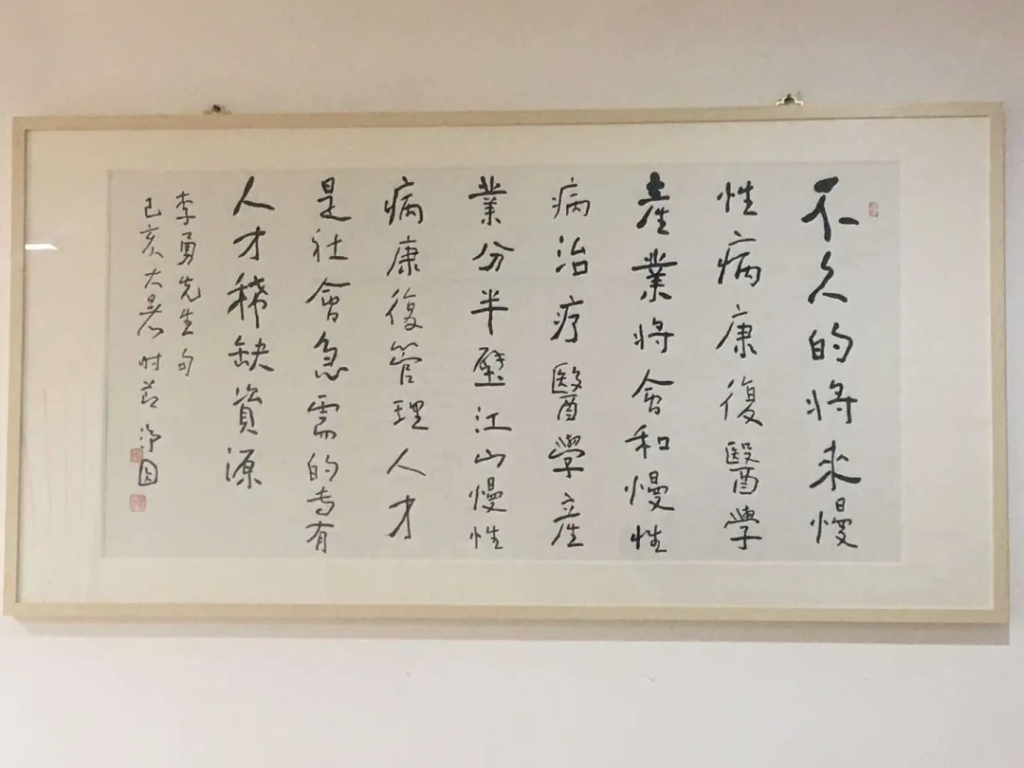 不久的将来慢
性病康復醫學
產業将會和慢性
病治疗醫學產
業分半壁江山慢性
病康復管理人才
是社會急需的专有
人才稀缺資源
李勇先生句
己亥大暑时节